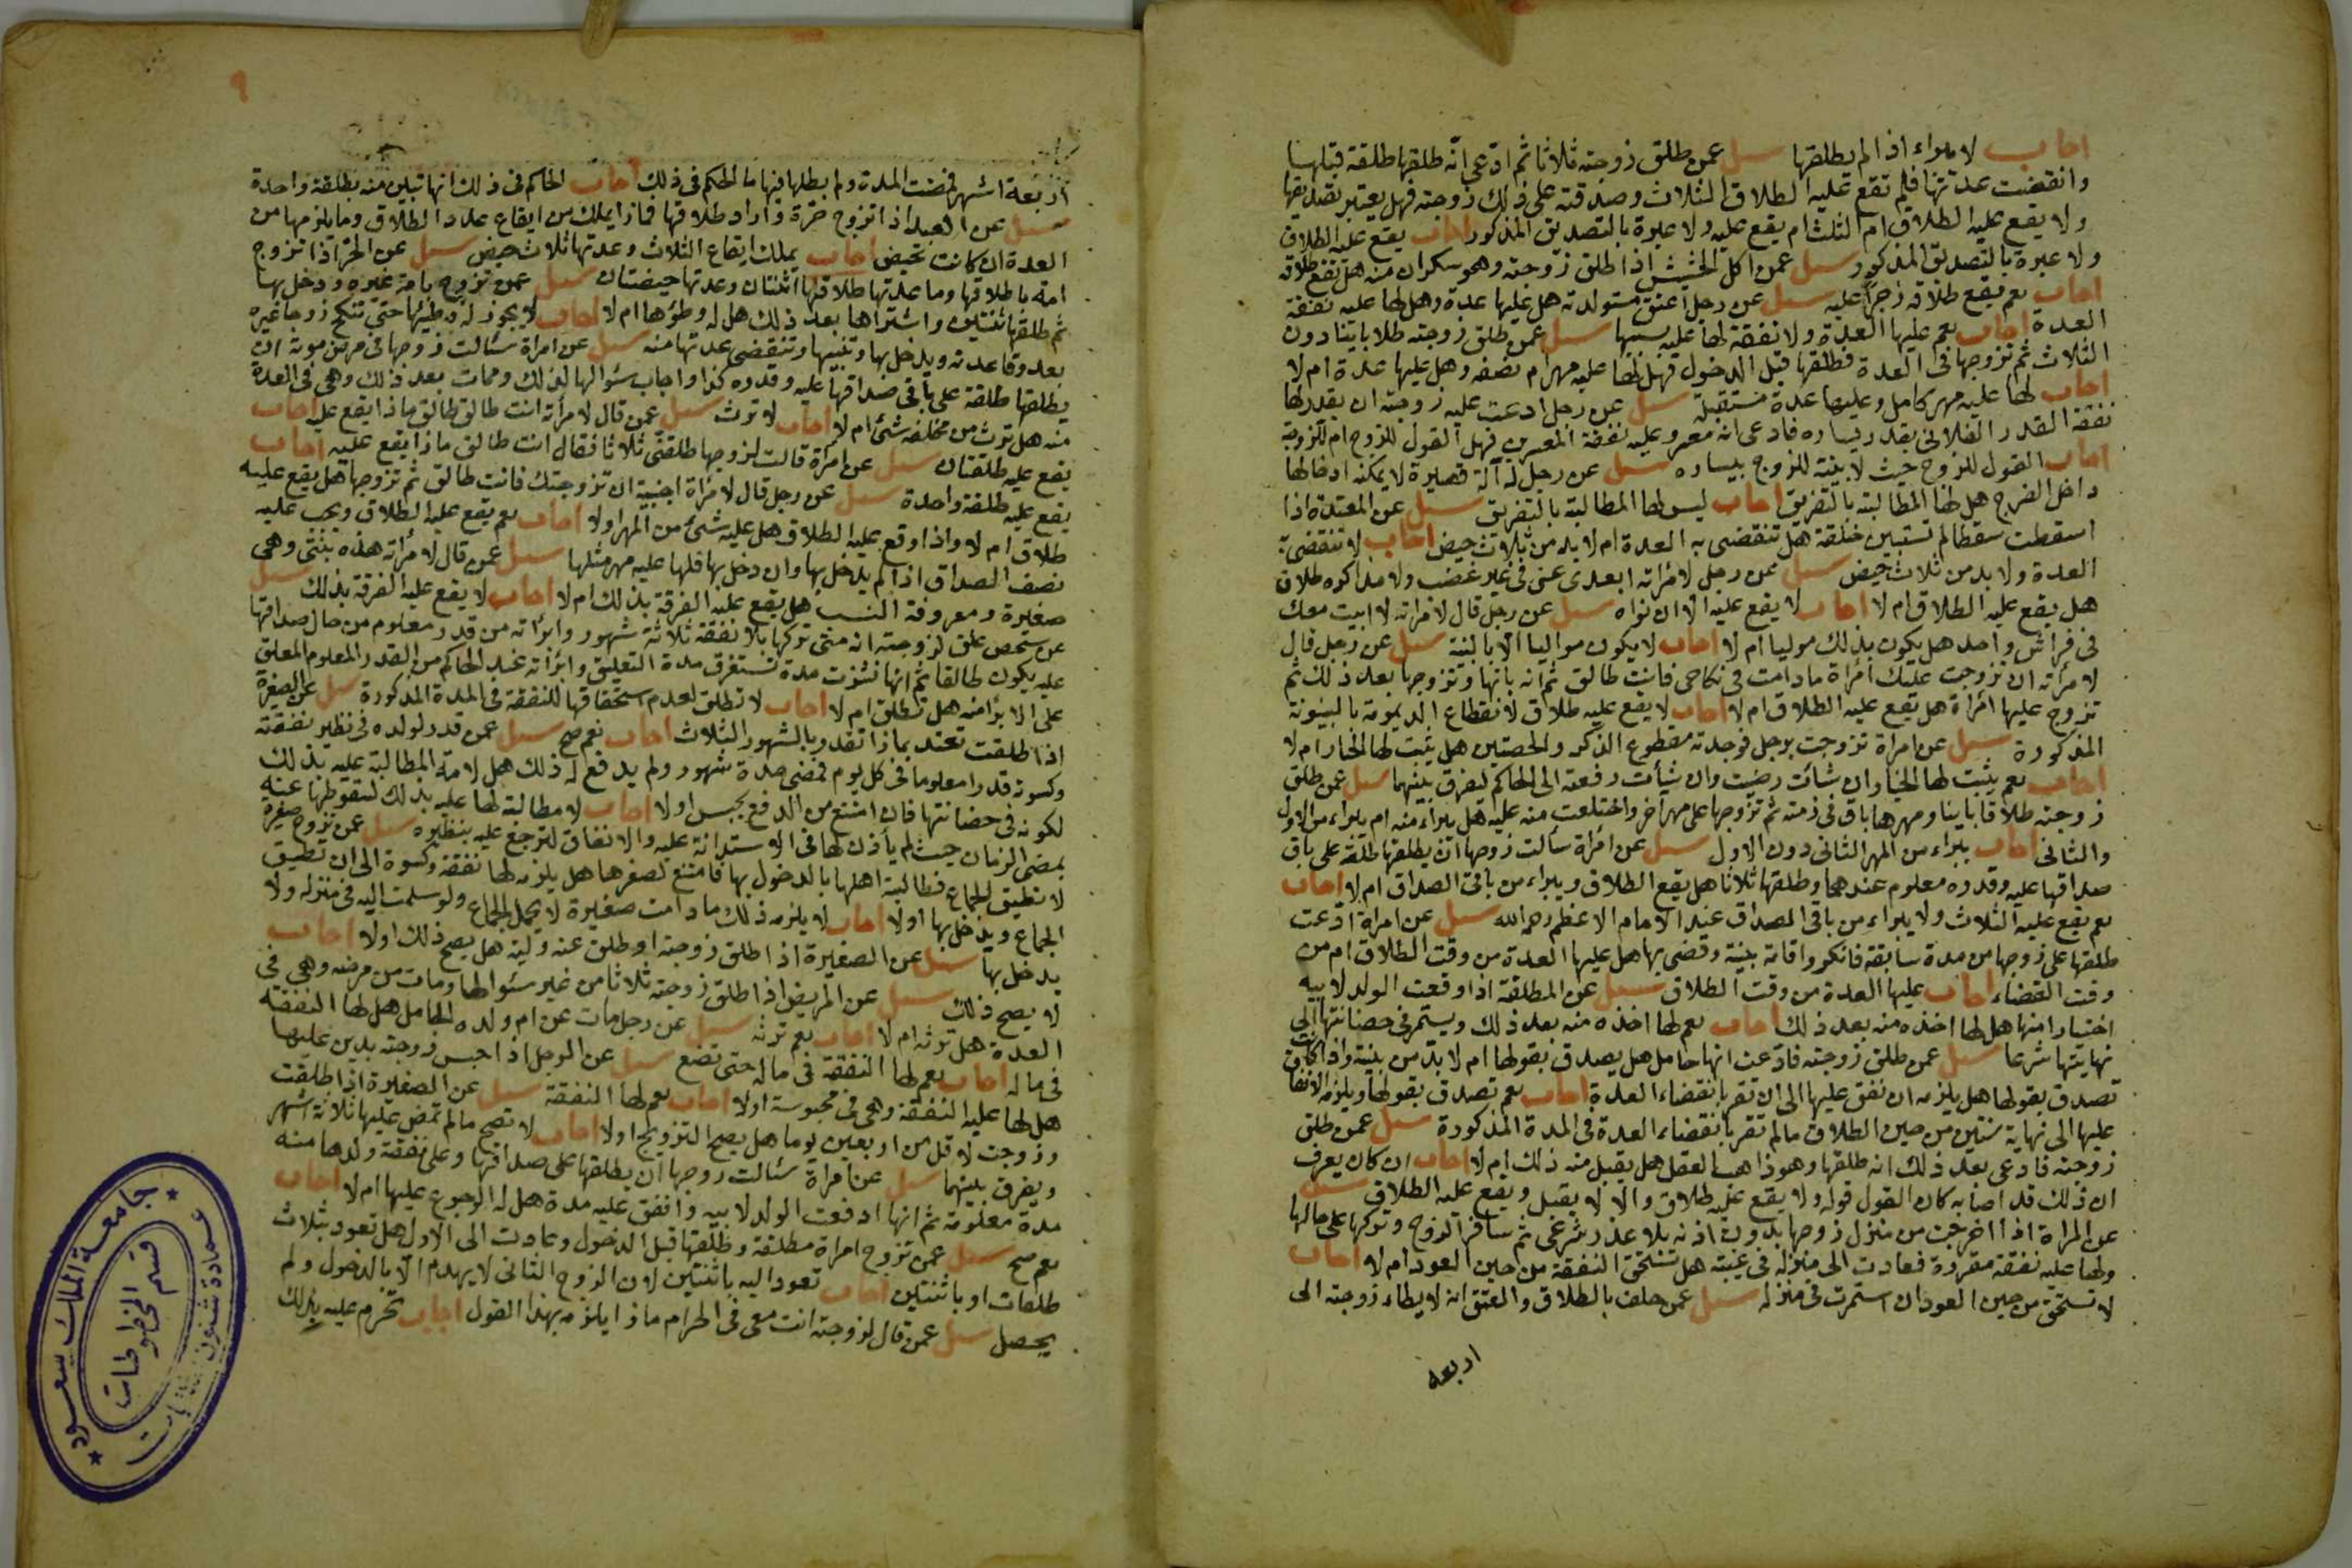 اجاب لا يبراء اذا لم يطلقها سيل عمن طلق زوجته ثلاثا ثم ادعى انه طلقها طلقة قبلها
وانقضت عدتها فلم تقع عليه الطلاق الثلاث وصدقته على ذلك زوجته فهل يعتبر تصديقها
ولا يقع عليه الطلاق ام الثلث ام يقع عليه ولا عبرة بالتصديق المذكور اجاب يقع عليه الطلاق
ولا عبرة بالتصديق المذكور سيل عمن اكل الحشيش اذا طلق زوجته وهو سكران منه هل تقع طلاقه
اجاب نعم يقع طلاقه زجرا عليه سيل عن رجل اعتق مستولدته هل عليها عدة وهل لها عليه نفقة
العدة اجاب نعم عليها العدة ولا نفقة لها عليه بسببها سيل عمن طلق زوجته طلاقا باينا دون
الثلاث ثم تزوجها في العدة فطلقها قبل الدخول فهل لها عليه مهر ام نصفه وهل عليها عدة ام لا
اجاب لها عليه مهر كامل وعليها عدة مستقبلة سيل عن رجل ادعت عليه زوجته ان يقدر لها
نفقة القدر الفلاني بقدر يساره فادعى انه معسر وعليه نفقة المعسرين فهل القول للزوج ام للزوجة
اجاب القول للزوج حيث لا بينة للزوج بيساره سيل عن رجل له آلة قصيرة لا يمكنه ادخالها
داخل الفرج هل لها المطالبة بالتفريق اجاب ليس لها المطالبة بالتفريق سيل عن المعتدة اذا
اسقطت سقطا لم تستبين خلقة هل تنقضي به العدة ام لا بد من ثلاث حيض اجاب لا تنقضي به
العدة ولا بد من ثلاث حيض سيل عن رجل لامراته ابعدى عنى في غير غضب ولا مذاكره طلاق
هل يقع عليه الطلاق ام لا اجاب لا يقع عليه الا ان نواه سيل عن رجل قال لامراته لا ابيت معك
في فراش واحد هل يكون بذلك موليا ام لا اجاب لا يكون مواليا الا بالنية سيل عن رجل قال
لامرأته ان تزوجت عليك امرأة مادامت في نكاحي فانت طالق ثم انه بانها وتزوجها بعد ذلك ثم
تزوج عليها امرأة هل تقع عليه الطلاق ام لا اجاب لا يقع عليه طلاق لانقطاع الديمومة بالبينونة
المذكورة سيل عن امراة تزوجت برجل فوجدته مقطوع الذكر والخصيتين هل يثبت لها الخيار ام لا
اجاب نعم يثبت لها الخيار ان شائت رضيت وان شيأت رفعته الى الحاكم ليفرق بينهما سيل عمن طلق
زوجته طلاقا باينا ومهرها باق في ذمته ثم تزوجها على مهر آخر واختلعت منه عليه هل يبراء منه ام يبراء من الاول
والثاني اجاب يبراء من المهر الثاني دون الاول سيل عن امراة سألت زوجها ان يطلقها طلقة على باق
صداقها عليه وقدره معلوم عندهما وطلقها ثلاثا هل يقع الطلاق ويبراء من باقي الصداق ام لا اجاب
نعم يقع عليه الثلاث ولا يبراء من باقي الصداق عند الامام الاعظم رحمه الله سيل عن امراة ادعت
طلقها على زوجها من مدة سابقة فانكر واقامة بينة وقضى بها هل عليها العدة من وقت الطلاق ام من
وقت القضاء اجاب عليها العدة من وقت الطلاق سيل عن المطلقة اذا وقعت الولد لابيه
اختيارا منها هل لها اخذه منه بعد ذلك اجاب نعم لها اخذه منه بعد ذلك ويستمر في حضانتها الى
نهايتها شرعا سيل عمن طلق زوجته فادعت انها حامل هل يصدق بقولها ام لا بد من بينة واذا كانت
تصدق بقولها هل يلزمه ان نفق عليها الى ان تقر بانقضاء العدة اجاب نعم تصدق بقولها ويلزم الانفاق
عليها الى نهاية سنتين من حين الطلاق مالم تقر بانقضاء العدة في المدة المذكورة سيل عمن طلق
زوجته فادعى بعد ذلك انه طلقها وهو ذاهب العقل هل يقبل منه ذلك ام لا اجاب ان كان يعرف
ان ذلك قد اصابه كان القول قوله ولا يقع عليه طلاق والا لا يقبل ويقع عليه الطلاق سيل
عن المراة اذا اخرجت من منزل زوجها بدون اذنه بلا عذر شرعي ثم سافر الزوج وتركها على حالها
ولها عليه نفقة مقررة فعادت الى منزله في غيبته هل تستحق النفقة من حين العود ام لا اجاب
لا تستحق من حين العود ان استمرت في منزله سيل عمن حلف بالطلاق والعتق انه لا يطاء زوجته الى
اربعه
٩
اربعة اشهر فمضت المدة ولم ابطلها فيها ما الحكم في ذلك اجاب الحاكم في ذلك انها تبين منه بطلقة واحدة
سيل عن العبد اذا تزوج حرة واراد طلاقها فماذا يملك من ايقاع عدد الطلاق وما يلزمها من
العدة ان كانت تحيض اجاب يملك ايقاع الثلاث وعدتها ثلاث حيض سيل عن الحر اذا تزوج
امة ما طلاقها وما عدتها طلاقها اثنتان وعدتها حيضتان سيل عمن تزوج بامة غيره ودخل بها
ثم طلقها ثنتين واشتراها بعد ذلك هل له وطؤها ام لا اجاب لا يجوز له وطئها حتى تنكح زوجا غيره
بعد وقاعدته ويدخل بها وتنقضي عدتها منه سيل عن امراة سئالت زوجها في مرض موته ان
يطلقها طلقة على باقي صداقها عليه وقدره كذا واجاب سئوالها لذلك ومات بعد ذلك وهي في العدة
منه هل ترث من مخلفه شئ ام لا اجاب لا ترث سيل عمن قال لامرأته انت طالق طالق ماذا يقع عليه اجاب
يقع عليه طلقتان سيل عن امرأة قالت لزوجها طلقني ثلاثا فقال انت طالق ماذا يقع عليه اجاب
يقع عليه طلقة واحدة سيل عن رجل قال لامراة اجنبية ان تزوجتك فانت طالق ثم تزوجها هل يقع عليه
طلاق ام لا واذا وقع عليه الطلاق هل عليه شئ من المهر اولا اجاب نعم يقع عليه الطلاق ويجب عليه
نصف الصداق اذا لم يدخل بها وان دخل بها فلها عليه مهر مثلها سيل عمن قال لامرأته هذه بنتى وهى
صغيرة ومعروفة النسب هل يقع عليه الفرقة بذلك ام لا اجاب لا يقع عليه الفرقة بذلك سيل
عن شخص علق لزوجته انه متى تركها بلا نفقة ثلاثة شهور وابرأته من قدر معلوم من حال صداقها
عليه يكون طالقا ثم انها نشزت مدة تستغرق مدة التعليق وابرأته عند الحاكم من القدر المعلوم المعلق
على الابرأ منه هل تطلق ام لا اجاب لا تطلق لعدم استحقاقها للنفقة في المدة المذكورة سيل عن الصغيرة
اذا طلقت تعتد بماذا تعتد وبالشهور الثلاث اجاب نعم صح سيل عمن قدر لولده في نظير نفقته
وكسوته قدرا معلوما في كل يوم فمضى مدة شهور ولم يدفع له ذلك هل لامه المطالبة عليه بذلك
لكونه في حضانتها فان امتنع من الدفع يحبس اولا اجاب لا مطالبة لها عليه بذلك لسقوطها عنه
بمضى الزمان حيث لم يأذن لها في الاستدانة عليه والانفاق لترجع عليه بنظيره سيل عمن تزوج صغيرة
لا تطيق الجماع فطالبة اهلها بالدخول بها فامتنع لصغرها هل يلزمه لها نفقة وكسوة الى ان تطيق
الجماع ويدخل بها اولا اجاب لا يلزمه ذلك مادامت صغيرة لا يحمل الجماع ولو سلمت اليه في منزله ولا
يدخل بها سيل عن الصغيرة اذا طلق زوجته او طلق عنه وليه هل يصح ذلك اولا اجاب
لا يصح ذلك سيل عن المريض اذا طلق زوجته ثلاثا من غير سئوالها ومات من مرضه وهي في
العدة هل ترثه ام لا اجاب نعم ترثه سيل عن رجل مات عن ام ولده الحامل هل لها النفقة
في ماله اجاب نعم لها النفقة في ماله حتى تضع سيل عن الرجل اذا حبس زوجته بدين عليها
هل لها عليه النفقة وهي في محبوسة اولا اجاب نعم لها النفقة سيل عن الصغيرة اذا طلقت
وزوجت لاقل من اربعين يوما هل يصح التزويج اولا اجاب لا تصح مالم تمض عليها ثلاثة اشهر
ويفرق بينهما سيل عن امراة سئالت زوجها ان يطلقها على صداقها وعلى نفقة ولدها منه
مدة معلومة ثم انها ادفعت الولد لابيه وانفق عليه مدة هل له الرجوع عليها ام لا اجاب
نعم صح سيل عمن تزوج امراة مطلقة وطلقها قبل الدخول وعادت الى الاول هل تعود بثلاث
طلقات او باثنتين اجاب تعود اليه باثنتين لان الزوج الثاني لا يهدم الا بالدخول ولم
يحصل سيل عمن قال لزوجته انت معى في الحرام ماذا يلزمه بهذا القول اجاب تحرم عليه بذلك
جامعة الملك سعود
عمادة شئون المكتبات
قسم المخطوطات